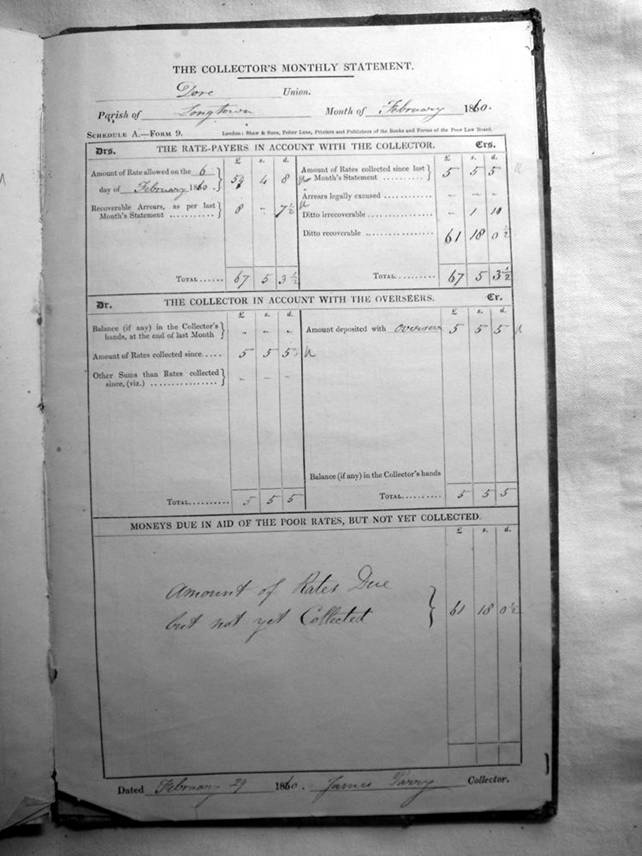 THE COLLECTOR'S MONTHLY STATEMENT.
Dore Union.
Parish of Longtown Month of February 1860.
SCHEDULE A.—FORM 9. London: Shaw & Sons, Fetter Lane, Printers and Publishers of the Books and Forms of the Poor Law Board.
Drs. THE RATE-PAYERS IN ACCOUNT WITH THE COLLECTOR. Crs.
£ s. d. £ s. d.
Amount of Rate allowed on the 6
day of February 1860. } 59 4 8
Recoverable Arrears, as per last
Month's Statement ........... } 8 - 7½
TOTAL...... 67 5 3½
Amount of Rates collected since last
Month's Statement .......... } 5 5 5
Arrears legally excused ........... - - -
Ditto irrecoverable ............... - 1 10
Ditto recoverable ................. 61 18 0½
TOTAL.......... 67 5 3½
Dr. THE COLLECTOR IN ACCOUNT WITH THE OVERSEERS. Cr.
£ s. d. £ s. d.
Balance (if any) in the Collector's
hands, at the end of last Month } - - -
Amount of Rates collected since .... 5 5 5
Other Sums than Rates collected
since, (viz.) ................ } - - -
TOTAL.......... 5 5 5
Amount deposited with Overseers 5 5 5
Balance (if any) in the Collector's hands
TOTAL.......... 5 5 5
MONEYS DUE IN AID OF THE POOR RATES, BUT NOT YET COLLECTED.
£ s. d.
Amount of Rates Due
but not yet Collected } 61 18 0½
Dated February 29 1860. James Parry Collector.